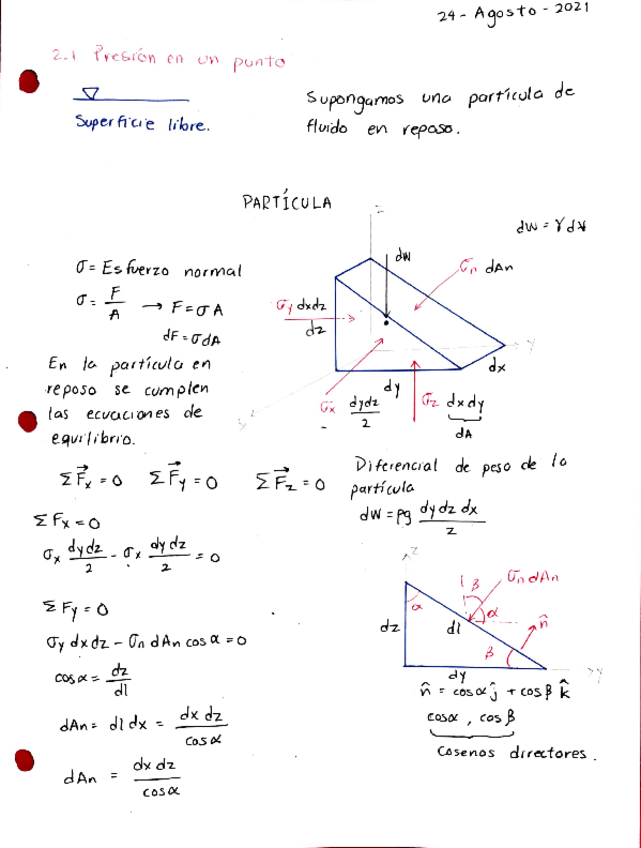 24 - Agosto - 2021
2.1 Presión en un punto
Superficie libre.
Supongamos una partícula de
fluido en reposo.
PARTÍCULA
dw = γ d∀
σ = Esfuerzo normal
σ = F/A → F = σ A
dF = σ dA
En la partícula en
reposo se cumplen
las ecuaciones de
equilibrio.
z
dw
σn dAn
σy dxdz
dz
y
dx
dy
σx dydz/2
σz dxdy
dA
x
ΣF⃗x = 0 ΣF⃗y = 0 ΣF⃗z = 0
Diferencial de peso de la
partícula
dw = ρg dy dz dx/2
ΣFx = 0
σx dydz/2 - σx dydz/2 = 0
ΣFy = 0
σy dx dz - σn dAn cos α = 0
cos α = dz/dl
dAn = dl dx = dx dz/cos α
dAn = dx dz/cos α
z
β
σn dAn
α
α
dz
dl
n̂
β
dy
y
n̂ = cosα ĵ + cosβ k̂
cosα , cosβ
Cosenos directores.